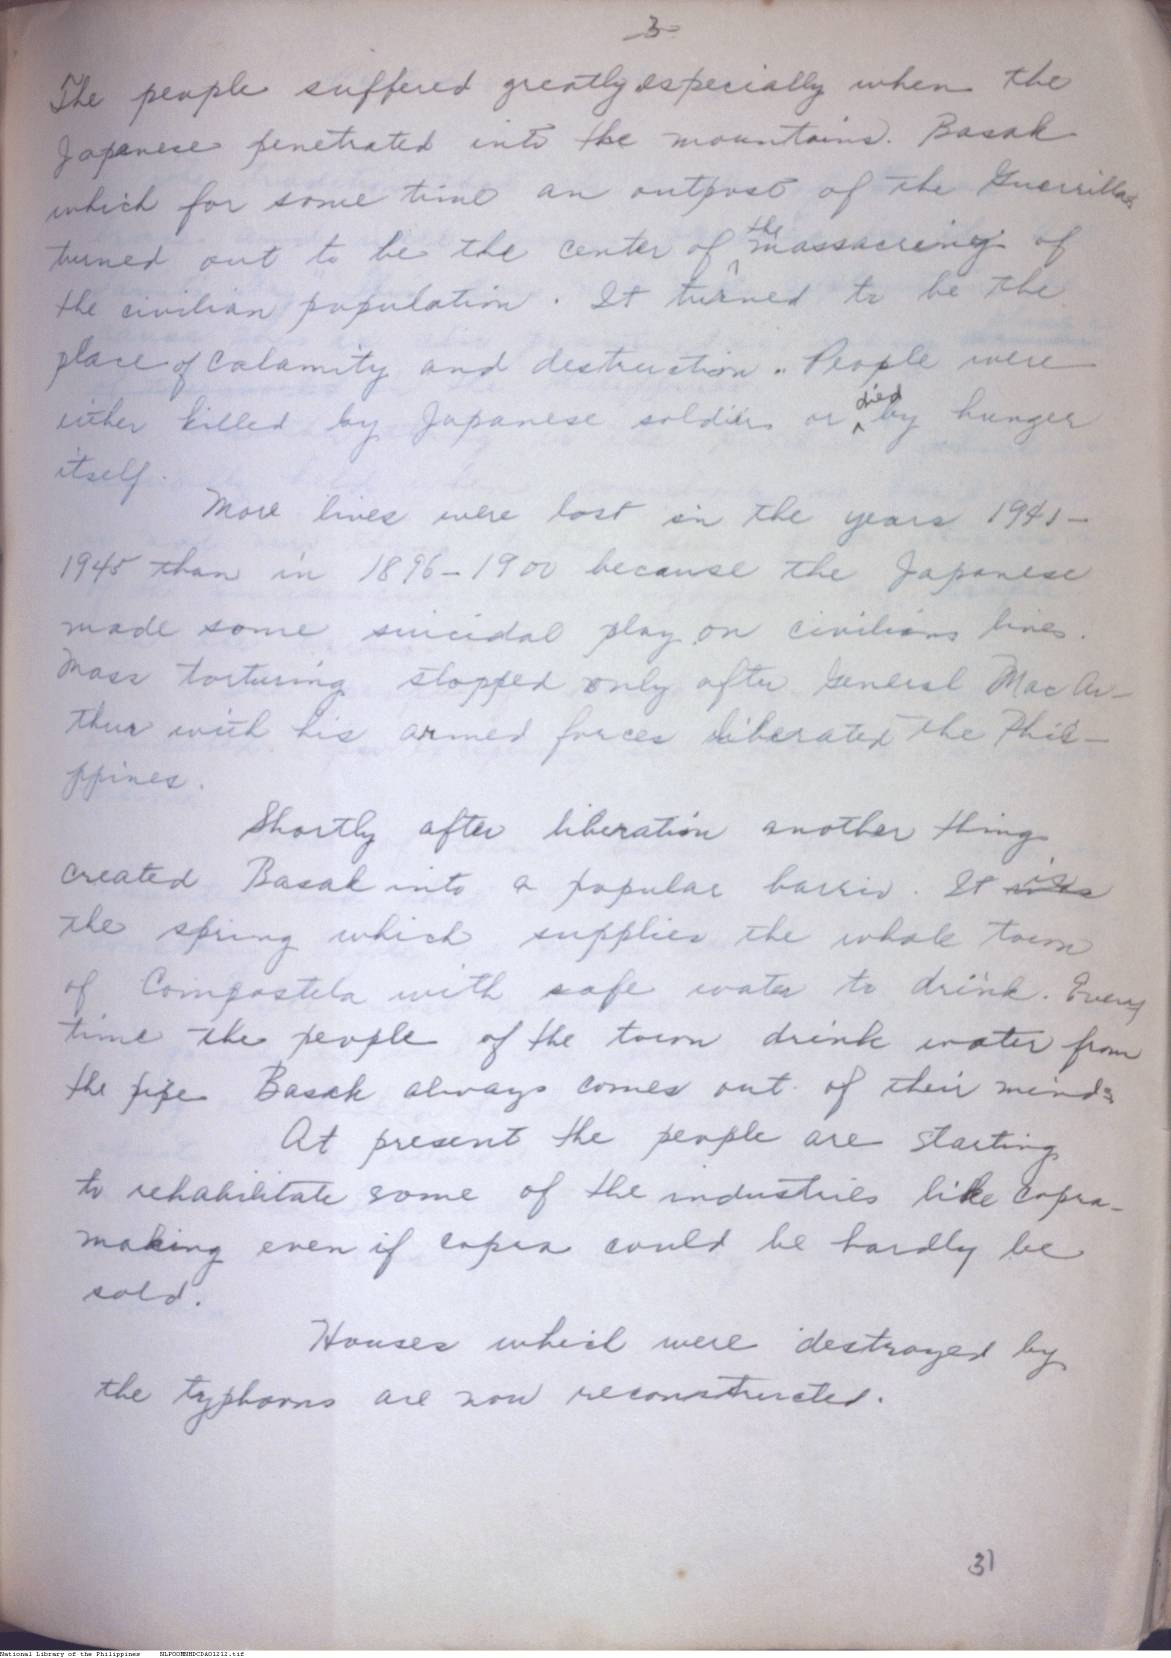 3
The people suffered greatly especially when the
Japanese penetrated into the mountains. Basak
which for some time an outpost of the Guerrillas
turned out to be the center of the massacreing of
the civilian population. It turned to be the
place of calamity and destruction. People were
either killed by Japanese soldiers or died by hunger
itself.
More lives were lost in the years 1941-
1945 than in 1896-1900 because the Japanese
made some suicidal play on civilians lives.
Mass torturing stopped only after General Mac Ar-
thur with his armed forces liberated the Phili-
ppines.
Shortly after liberation another thing
created Basak into a popular barrio. It is
the spring which supplies the whole town
of Compostela with safe water to drink. Every
time the people of the town drink water from
the pipe Basak always comes out of their minds
At present the people are starting
to rehabilitate some of the industries like copra-
making even if copra could be hardly be
sold.
Houses which were destroyed by
the typhoons are now reconstructed.
31
National Library of the Philippines NLPOOMNHDCDA01212.tif